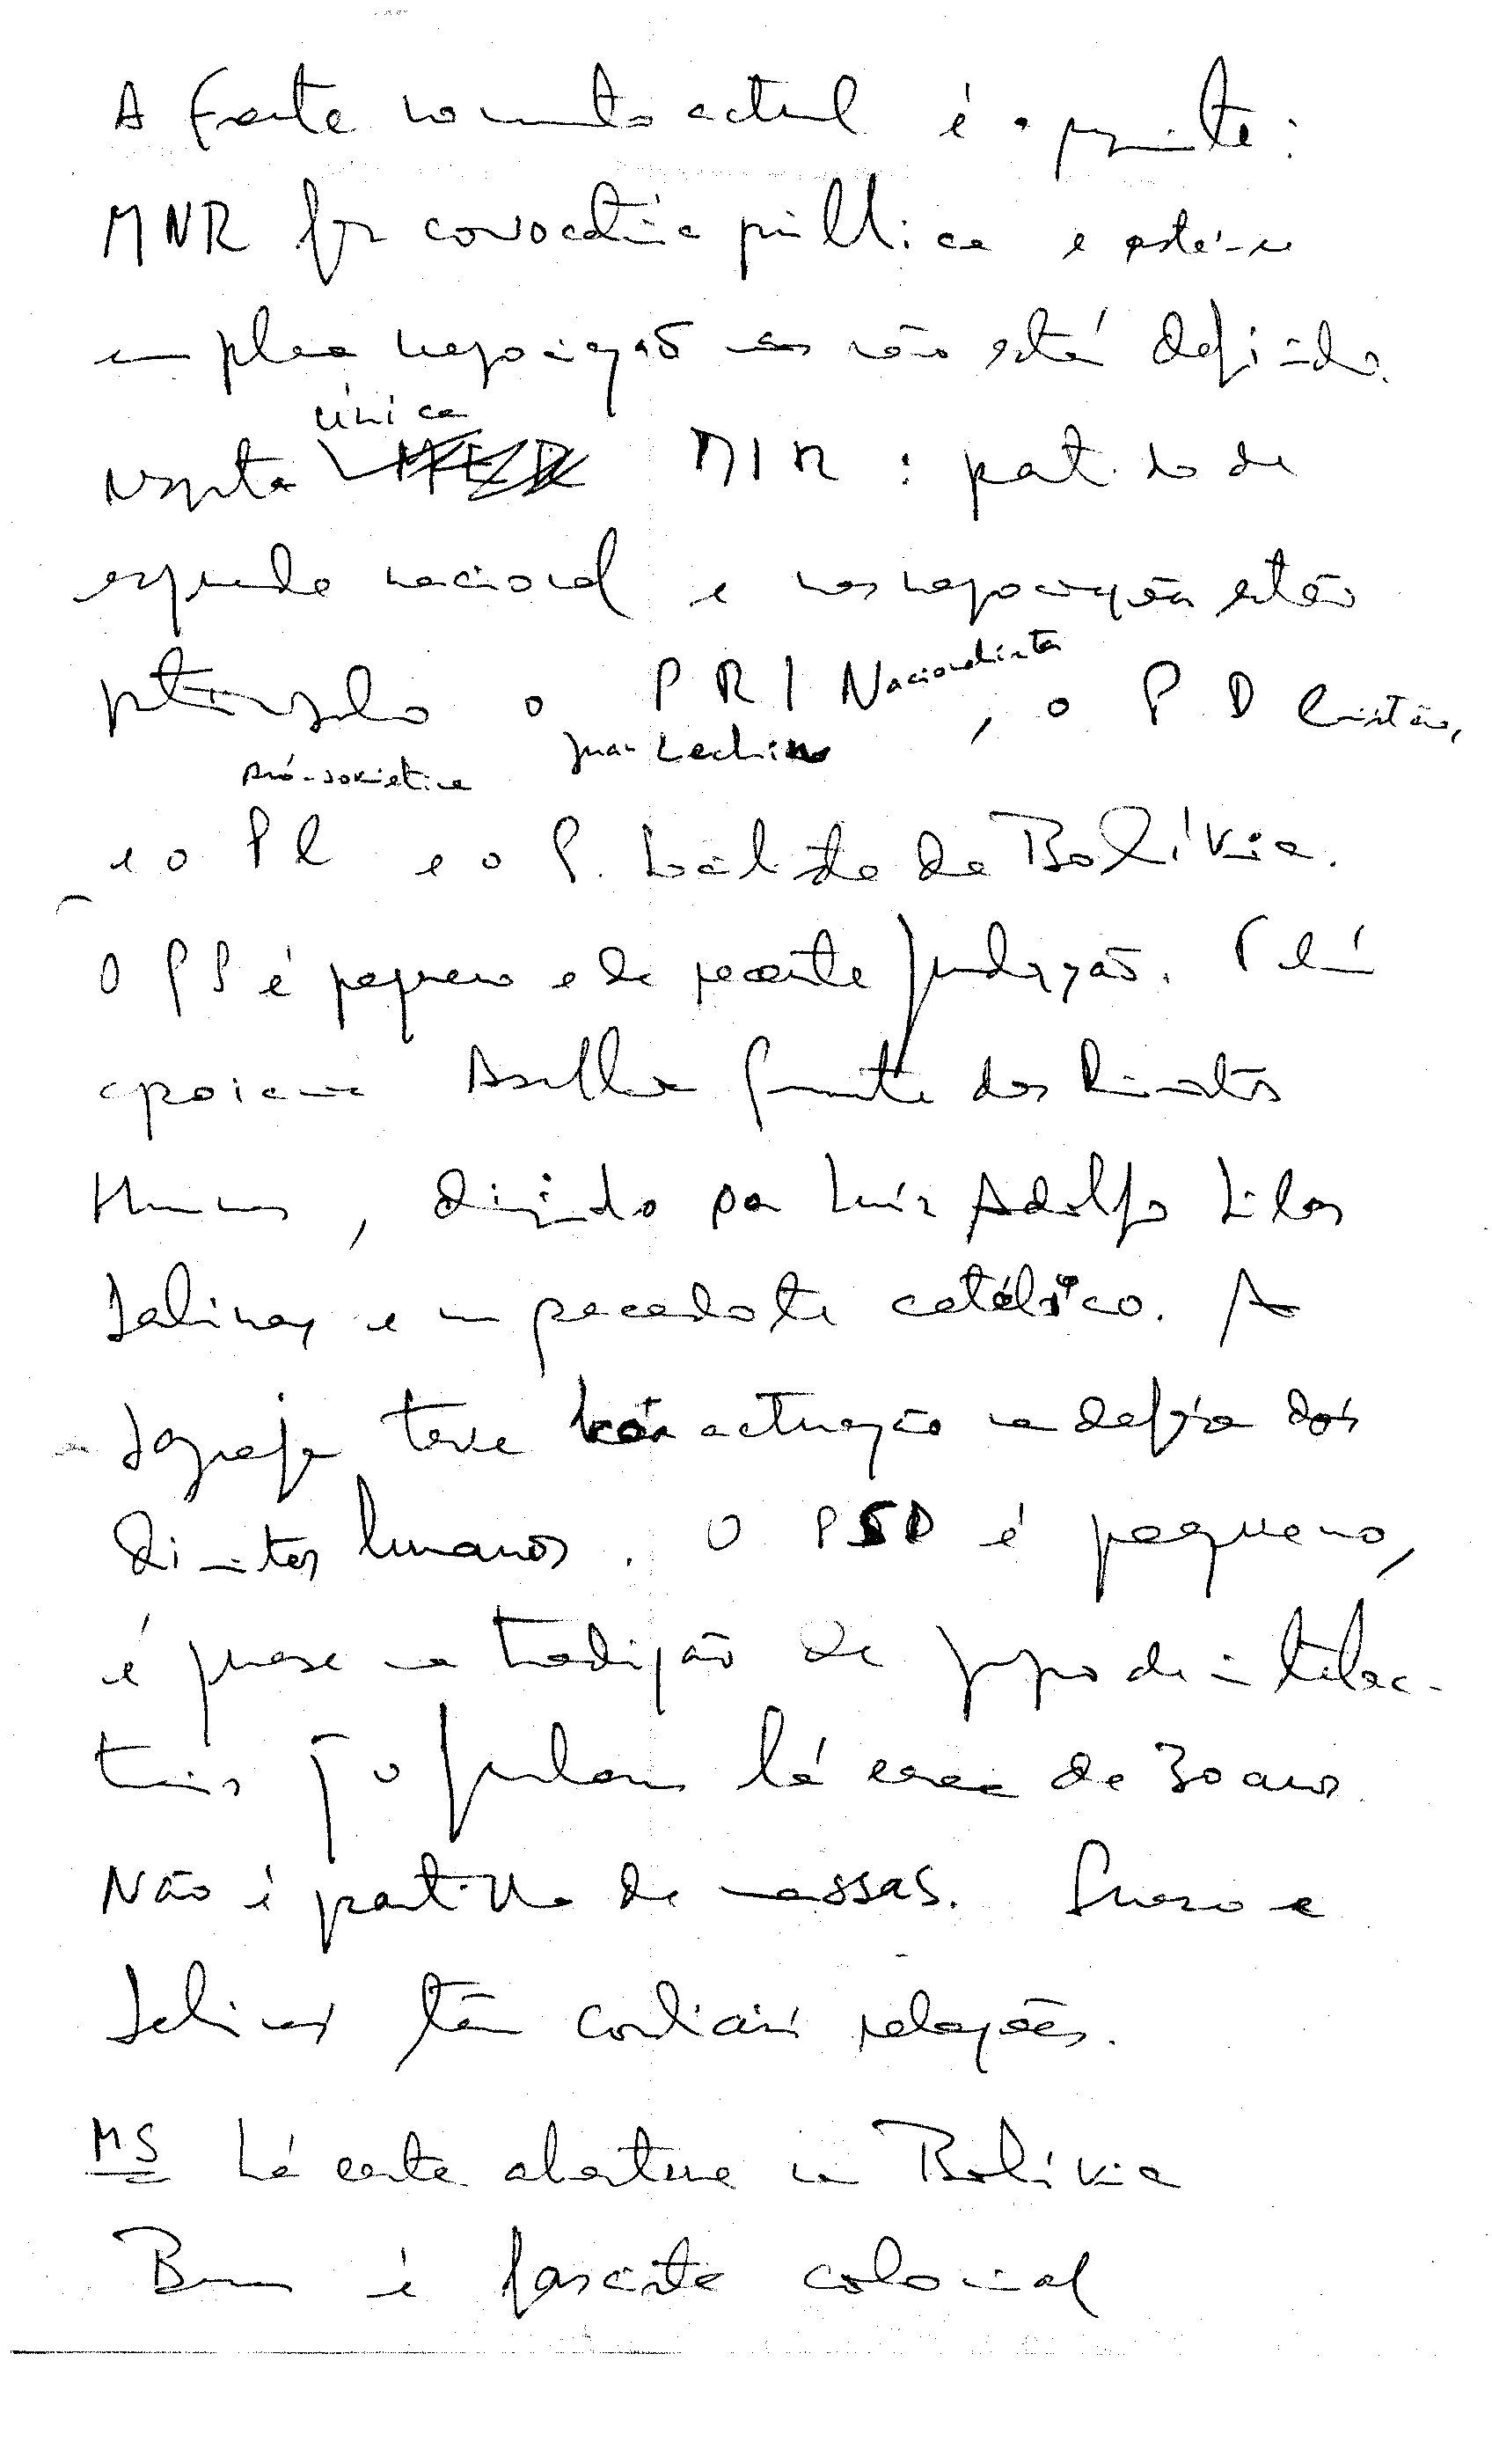 A frente no momento actual é o seguinte:
MNR fez convocatória pública e está-se
em plena negociação mas não está definido.
única
resposta MIR: partido de
esquerda nacional e nas negociações estão
participando o PRI Nacionalista, o PD Cristão,
Juan Lechin
pró-soviética
e o PC e o P. de Bolívia.
O PS é pequeno e de recente fundação. P lá
apoiam Assembleia Permanente dos Direitos
Humanos, dirigido por Luís Adolfo Siles
Salinas e um sacerdote católico. A
Igreja teve boa actuação na defesa dos
direitos humanos. O PSD é pequeno,
é quase na tradição de grupo de intelec-
tuais q o fundaram há cerca de 30 anos.
Não é partido de massas. Suazo e
Salinas têm cordiais relações.
MS Há certa abertura na Bolívia
é fascista colonial